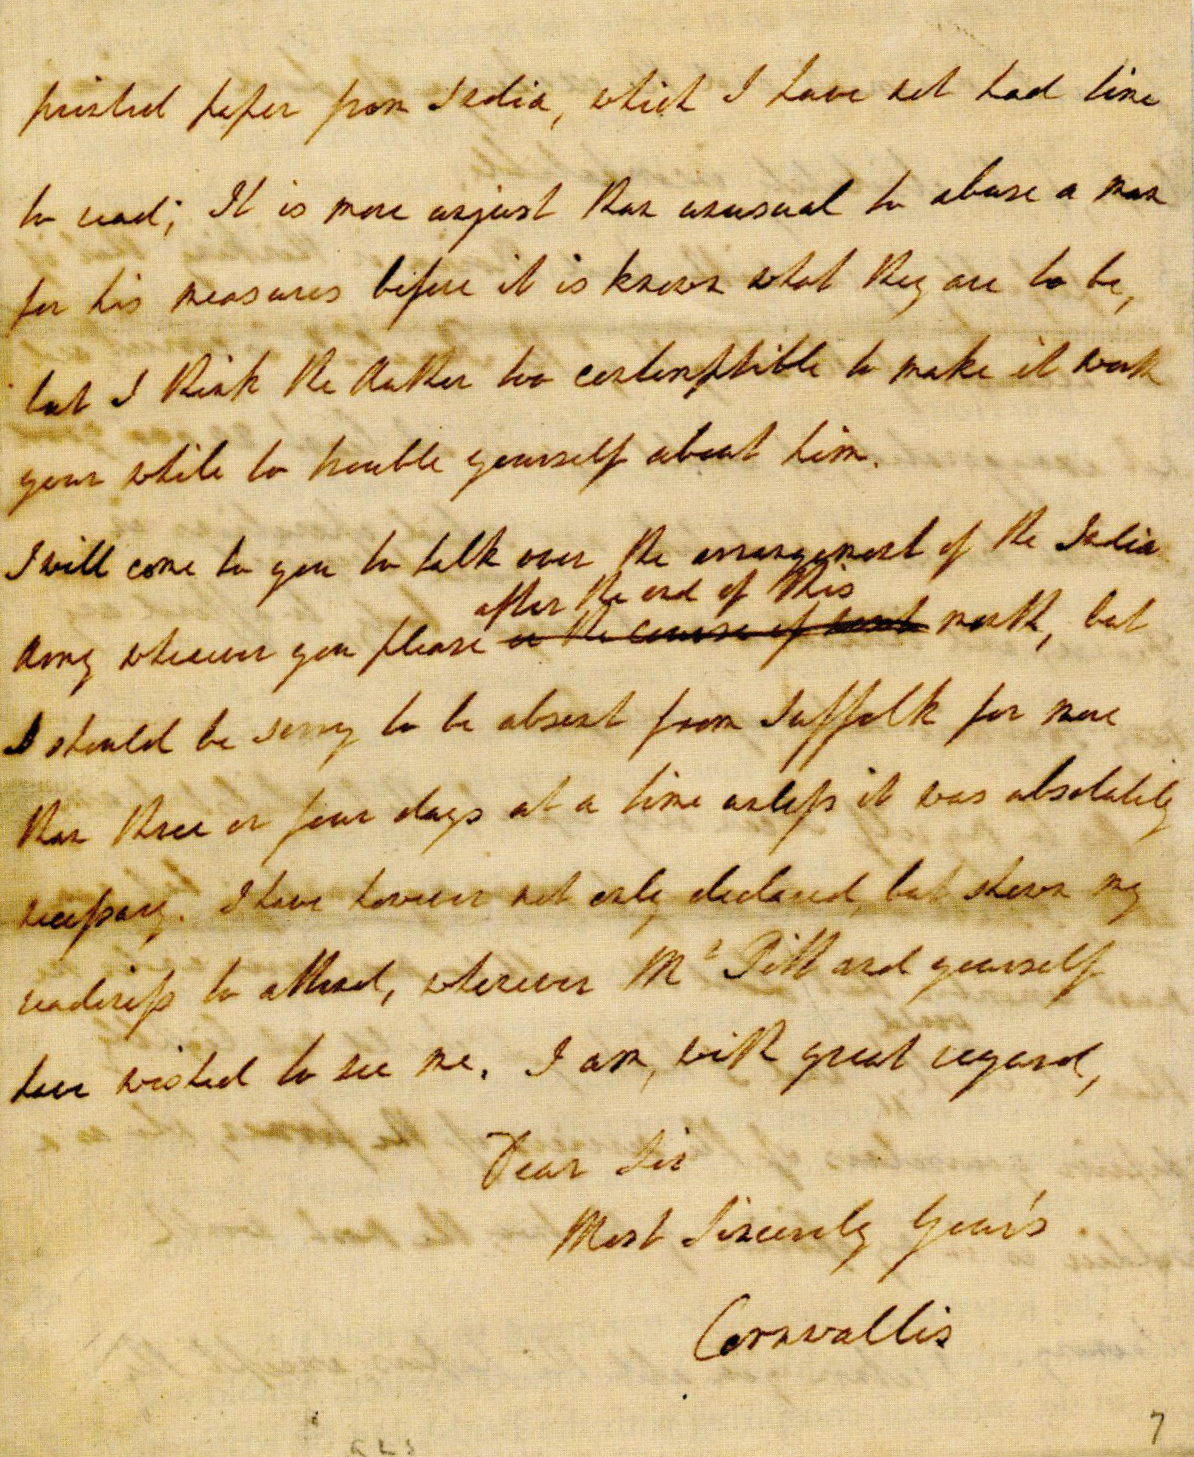 printed paper from India, which I have not had time
to read; It is more unjust than unusual to abuse a man
for his measures before it is known what they are to be,
but I think the Author too contemptible to make it worth
your while to trouble yourself about him.
I will come to you to talk over the arrangement of the India
after the end of this
Army whenever you please in the course of month, but
I should be sorry to be absent from Suffolk for more
than three or four days at a time unless it was absolutely
necessary. I have however not only declared, but shewn my
readiness to attend, whenever Mr Pitt and yourself
have wished to see me. I am, with great regard,
Dear Sir
Most Sincerely Your's
Cornwallis
7